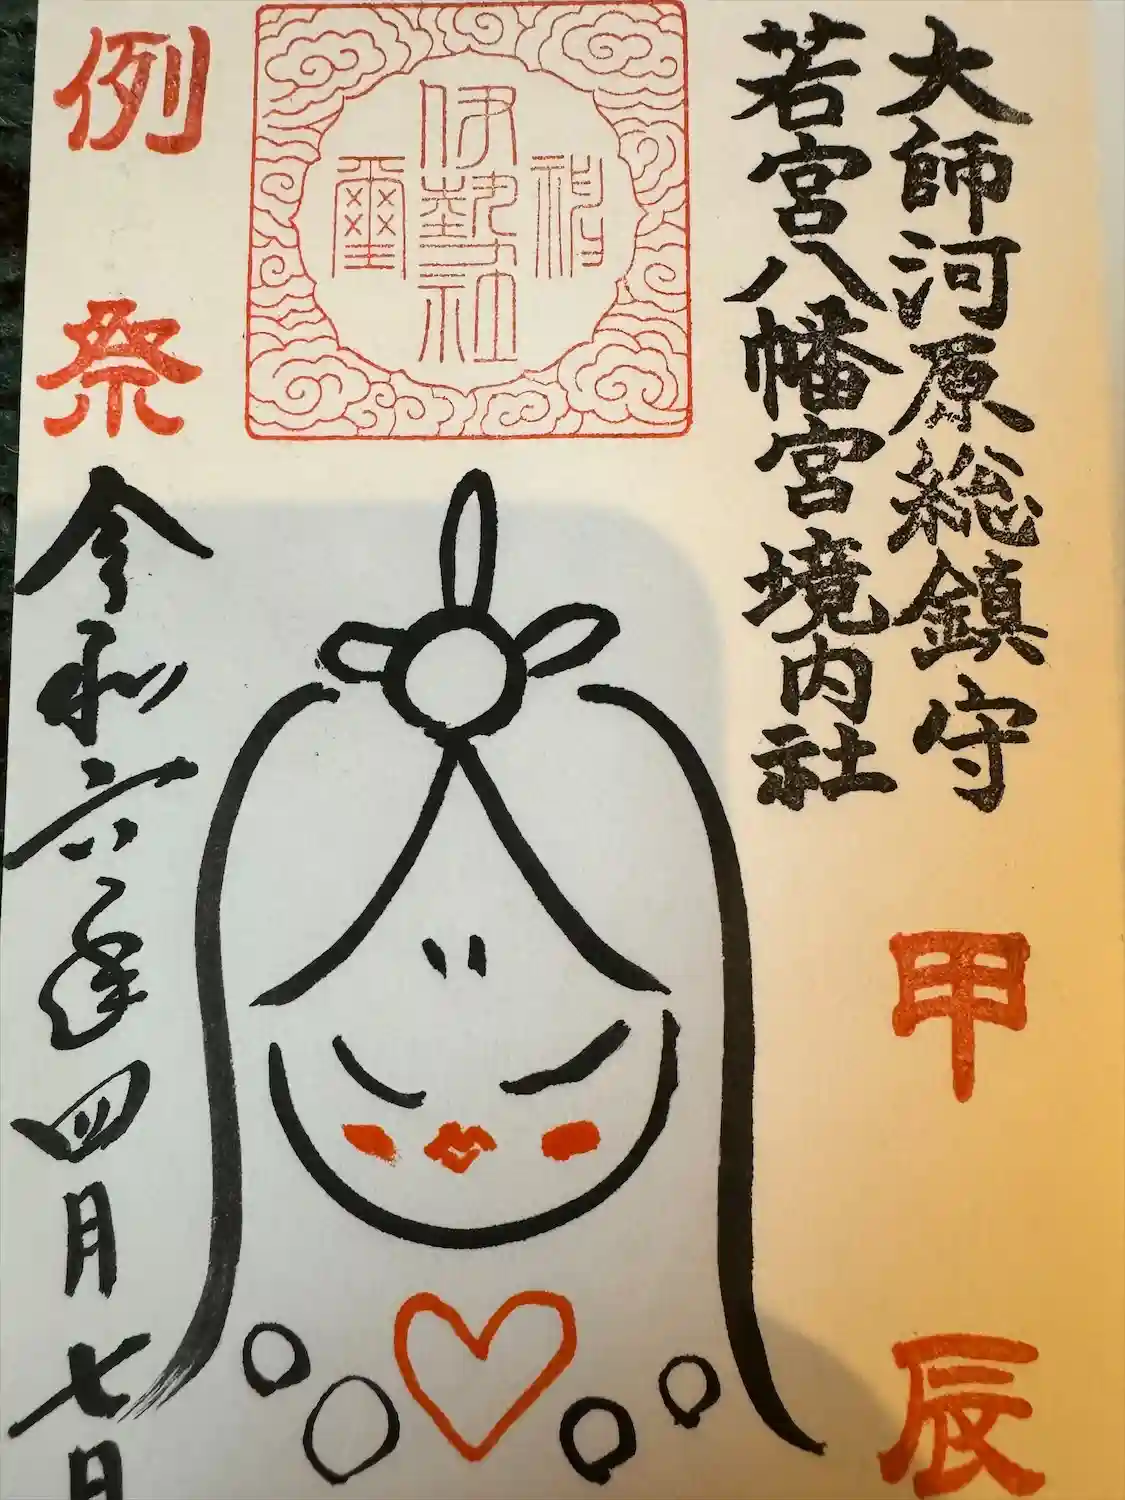 大師河原総鎮守
若宮八幡宮境内社
甲辰
神
伊勢社
璽
例祭
令和六年四月七日